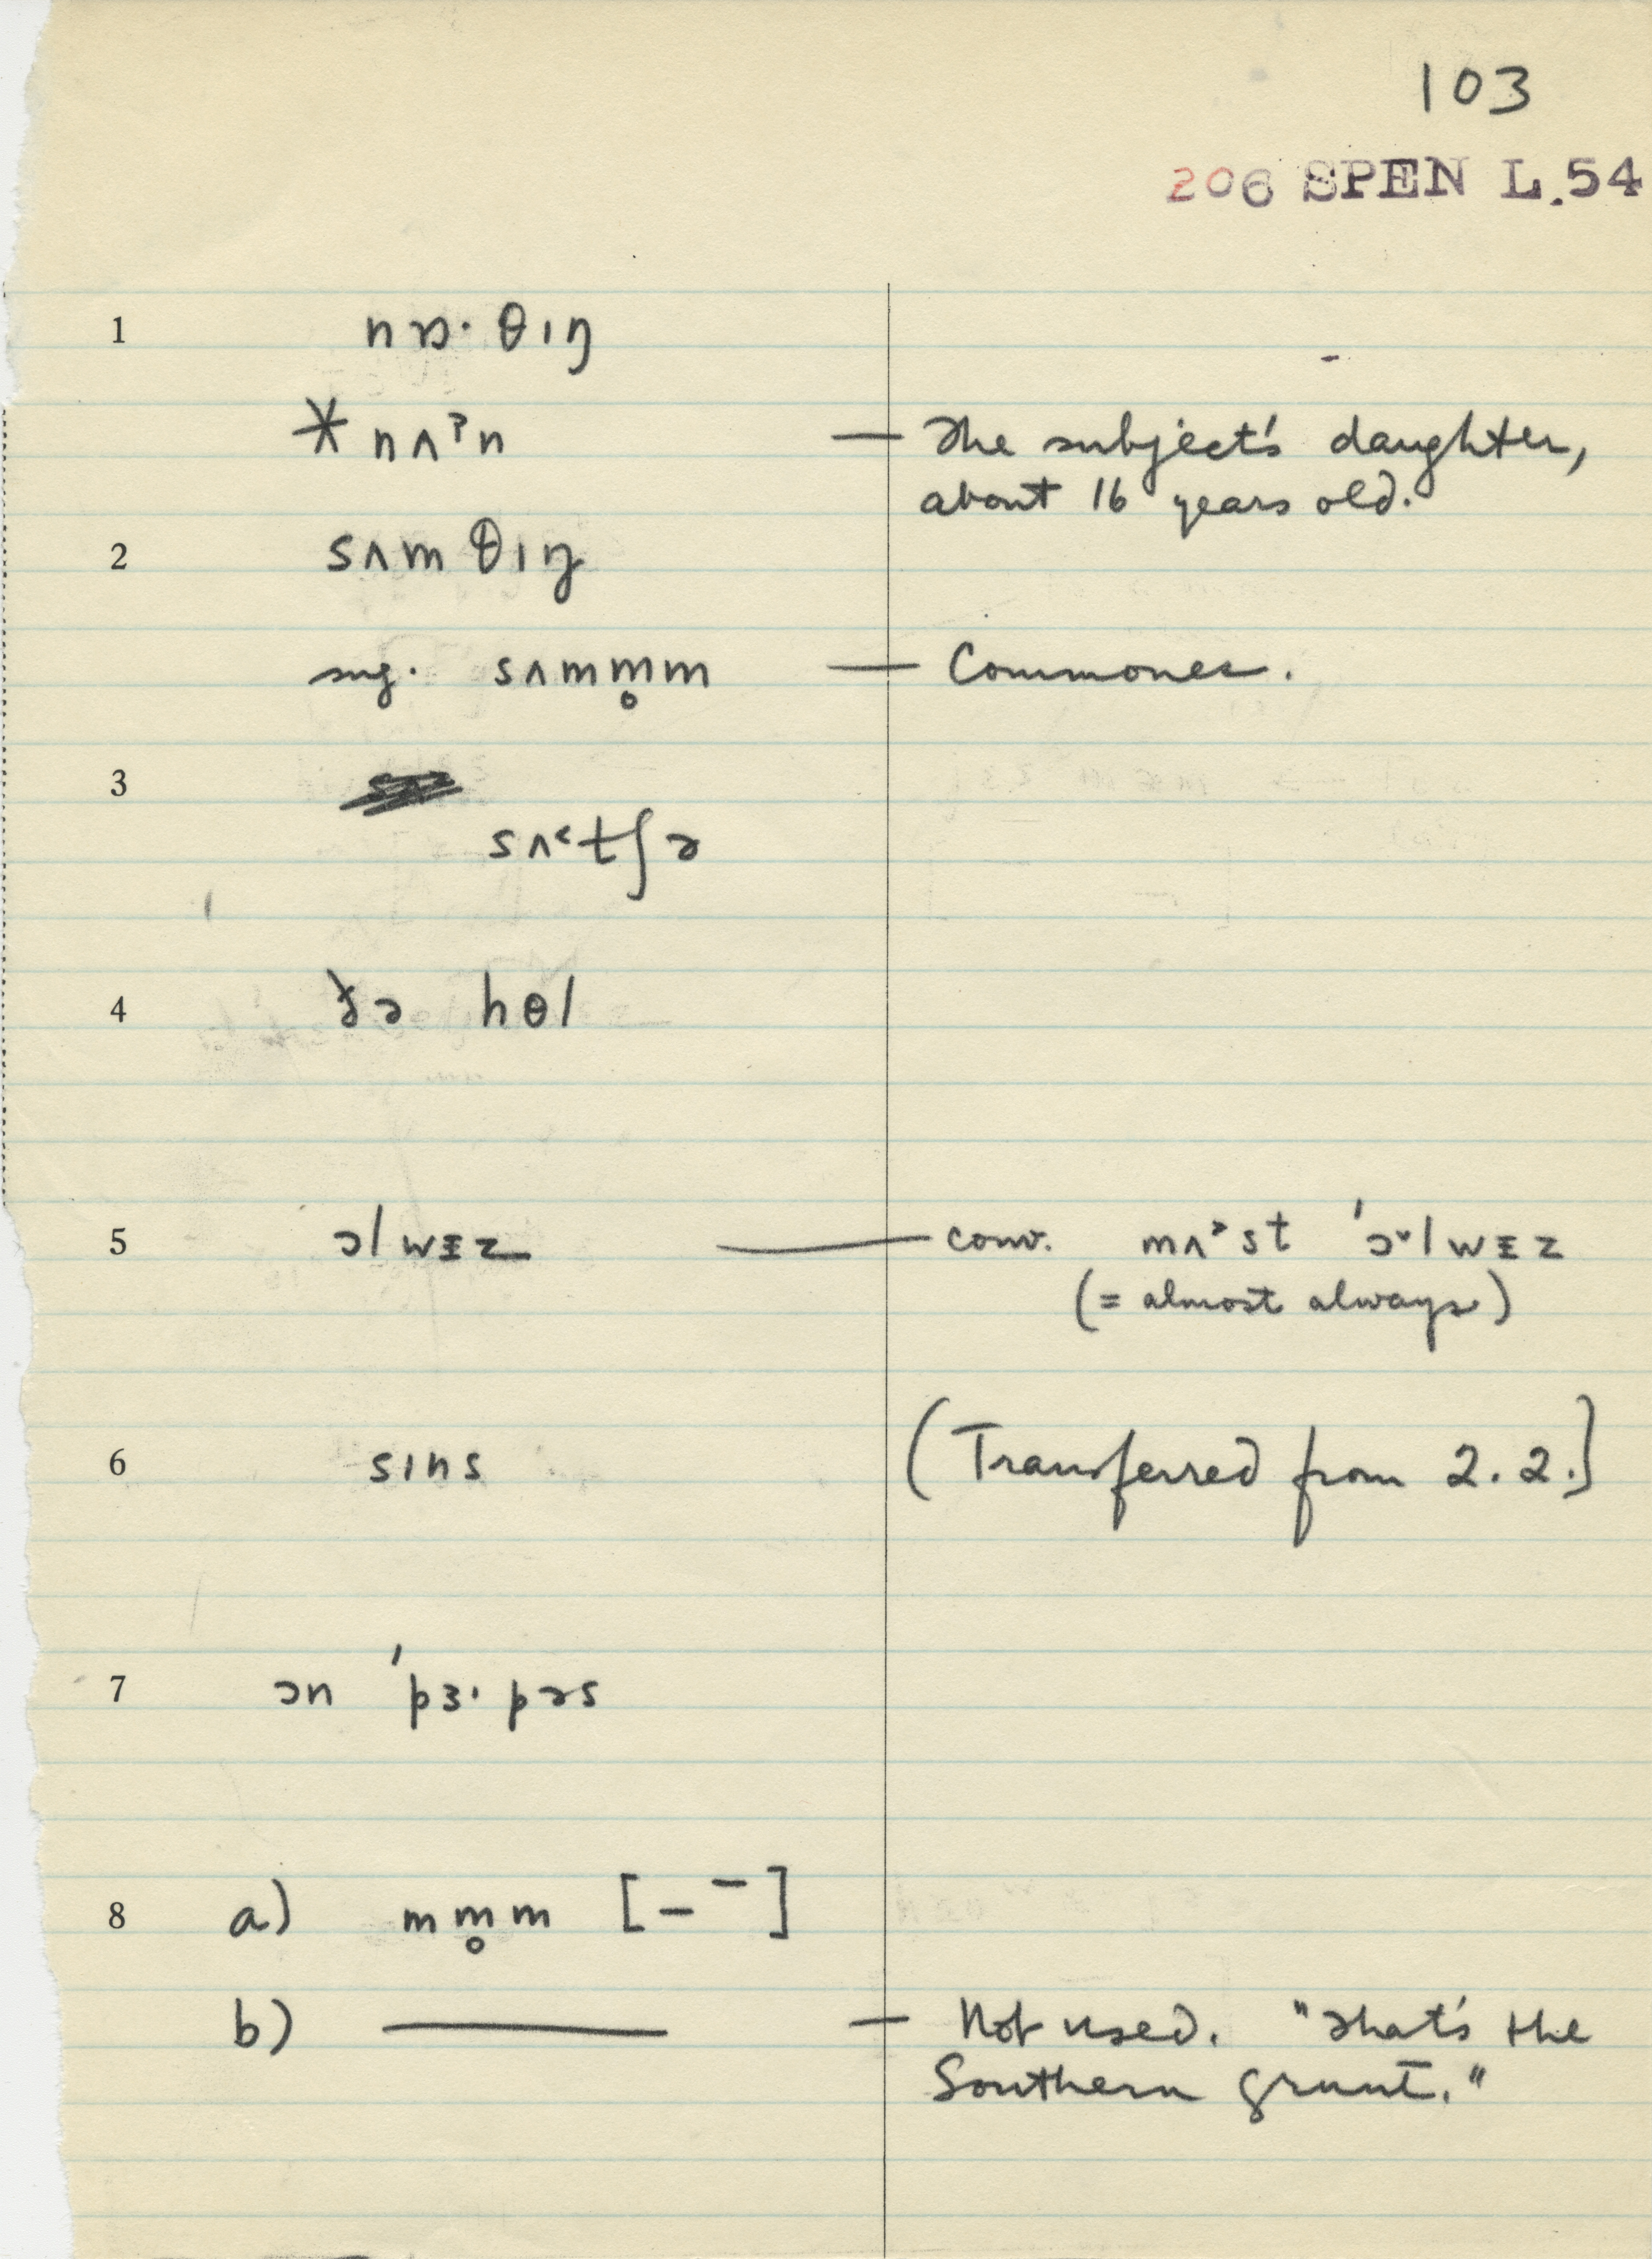 103
206 SPEN L.54
1 nɒ· θɪŋ
* nʌˀn — The subject's daughter,
about 16 years old.
2 sʌm θɪŋ
sug. sʌmm̥m — Commoner.
3
sʌ˂tʃə
4 ðə hɵl
5 ɔlwɪz — conv. mʌ˃st 'ɔ˅lwɪz
(= almost always)
6 sɪns (Transferred from 2.2.)
7 ɔn 'pɜ·pəs
8 a) mm̥m [– ¯]
b) — — Not used. "That's the
Southern grunt."